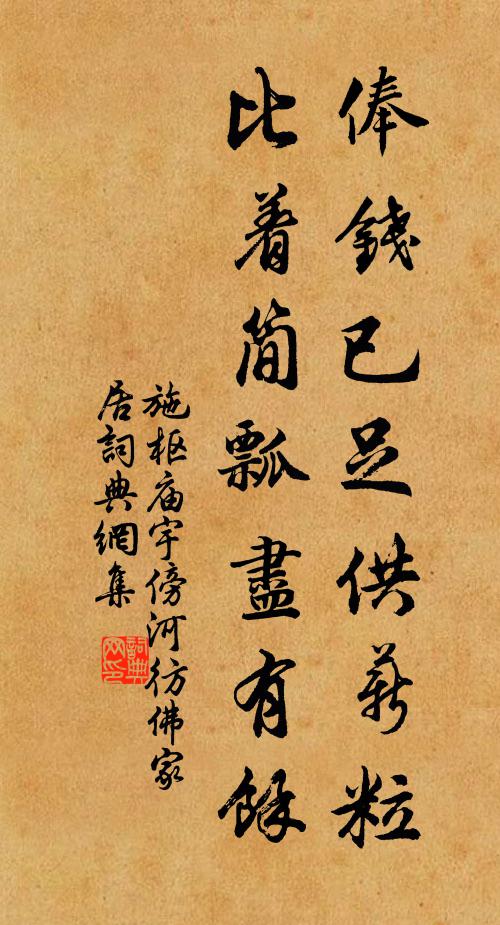 俸錢已足供薪粒
比着簡瓢盡有餘
施枢庙宇傍河彷佛家
居詞典網集
詞典
网印